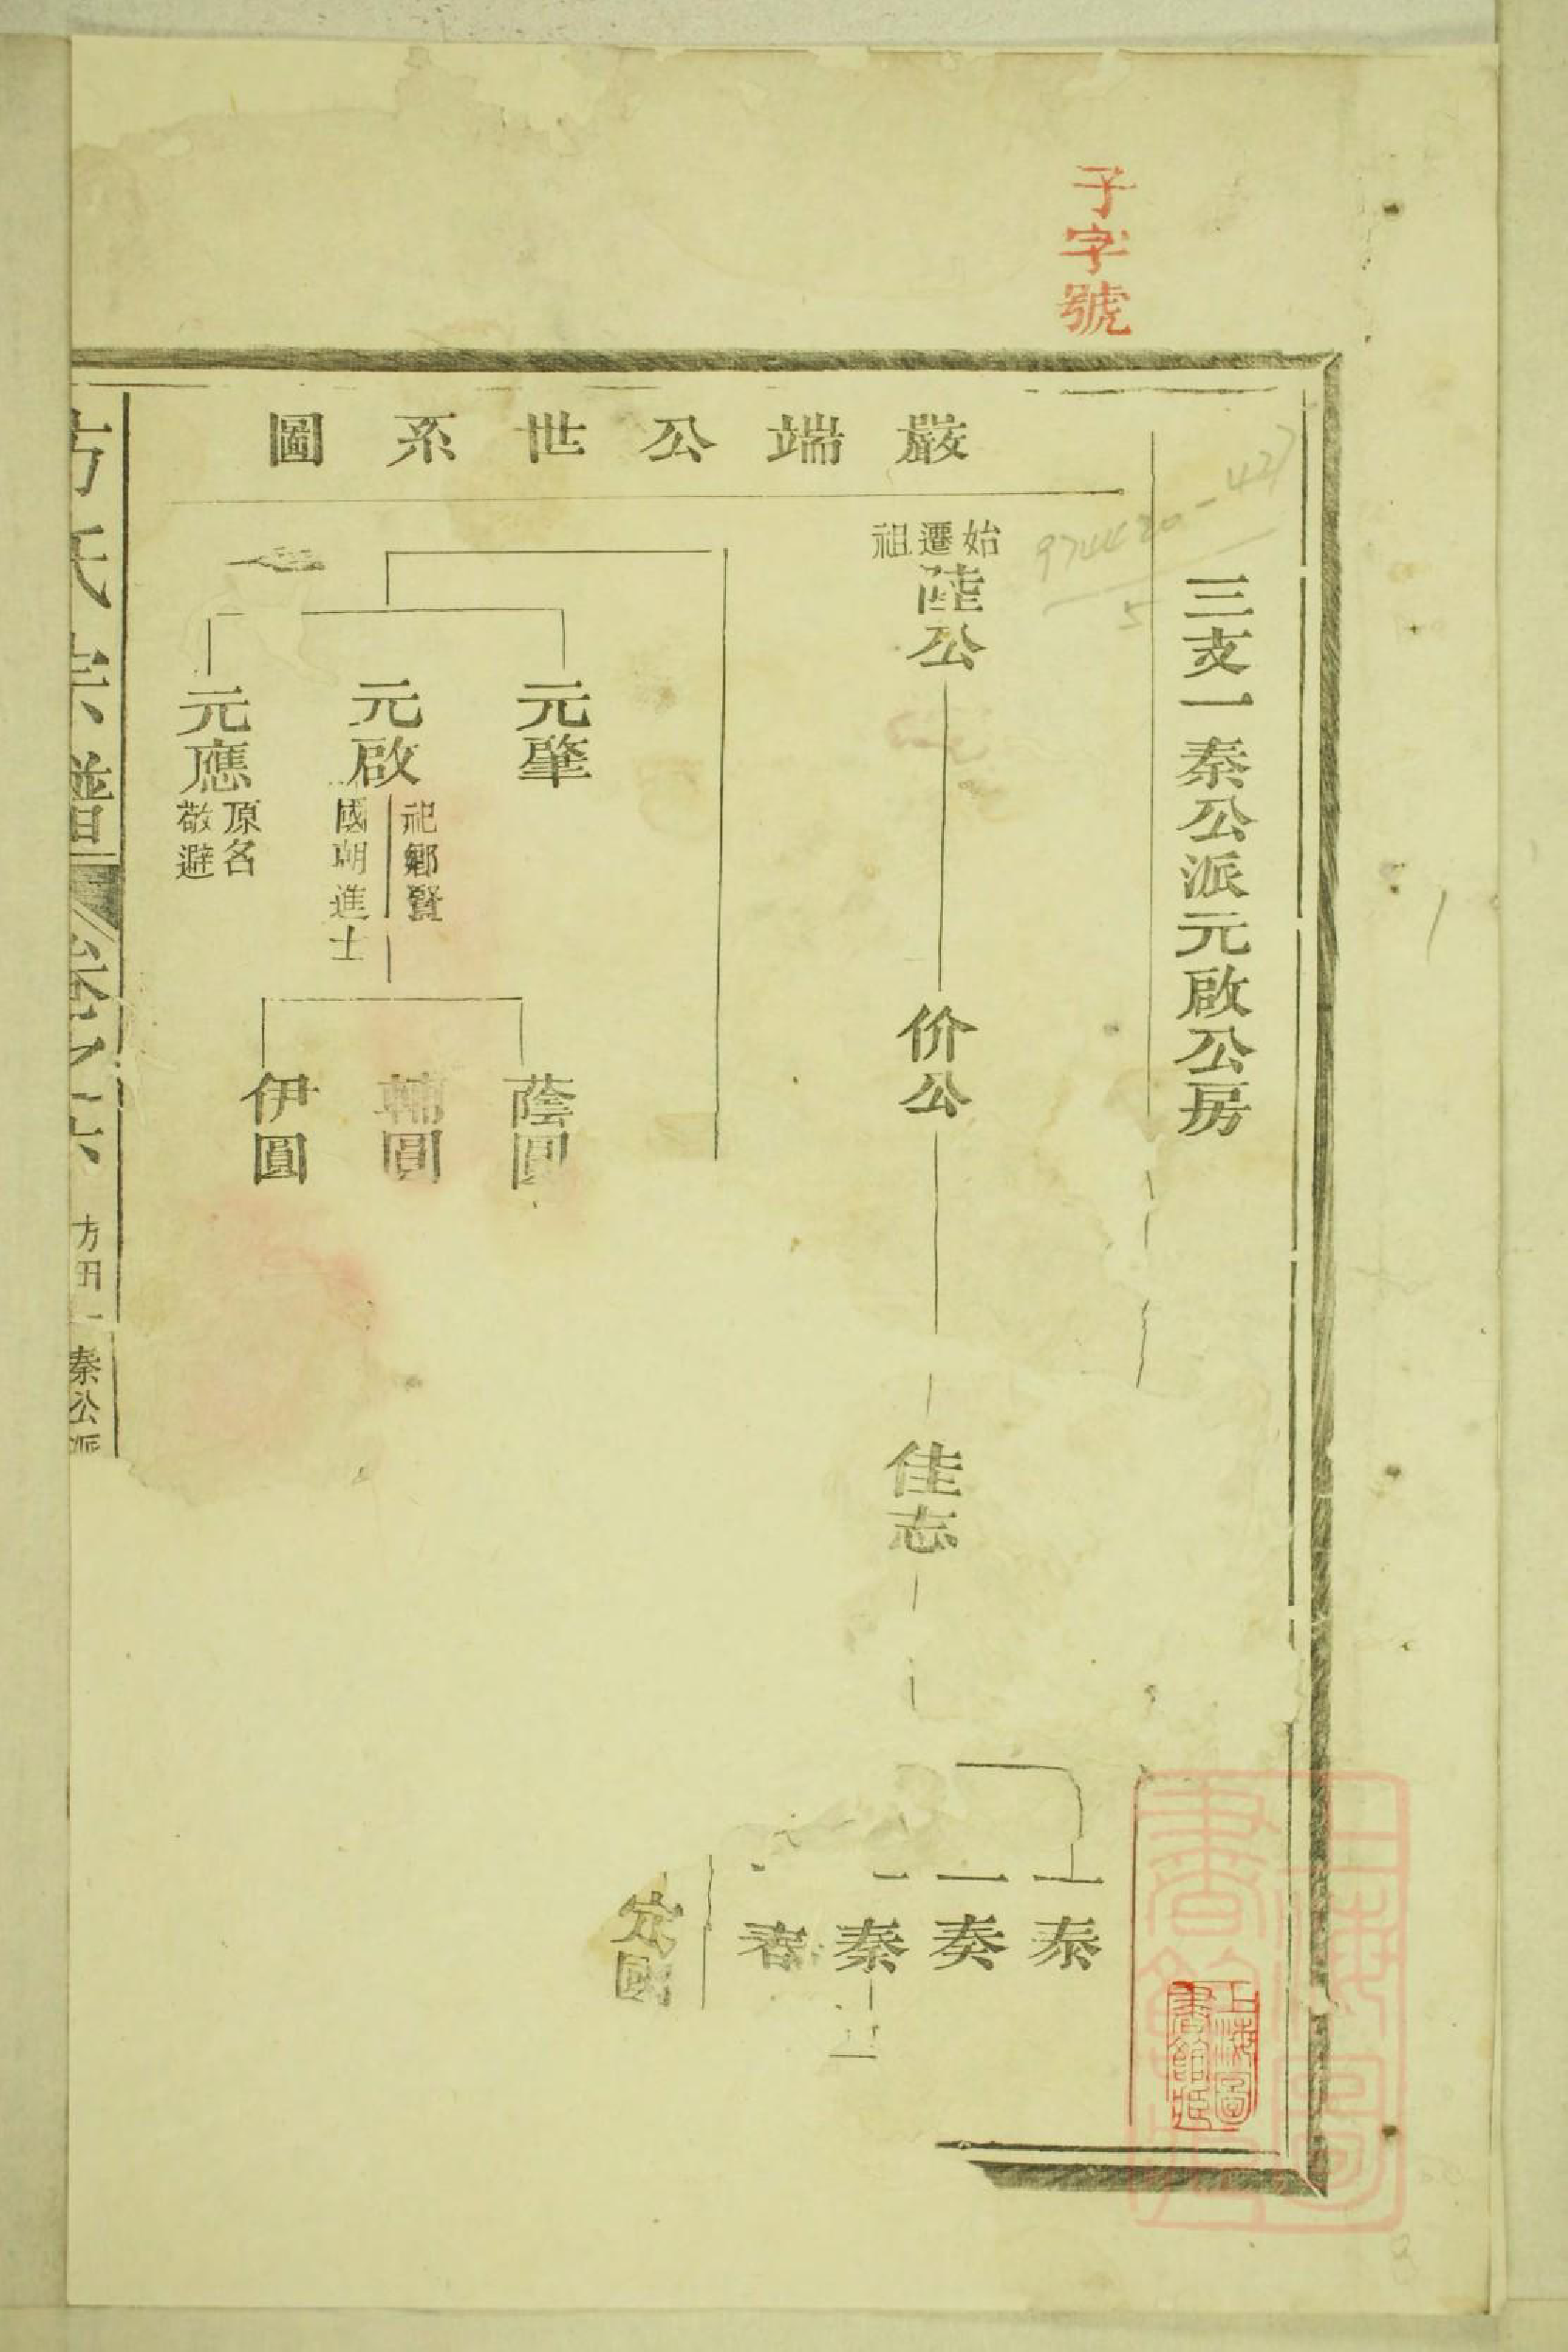 子字號
三支一秦公派元啟公房
嚴端公世系圖
始遷祖
陸公
价公
佳志
一泰
一奏
一秦
春
定國
元肇
元啟
祀鄉賢
國朝進士
元應
原名
敬避
蔭圓
輔圓
伊圓
方氏宗譜
卷之六
方田一秦公派
上海圖書館藏
974420-427
5